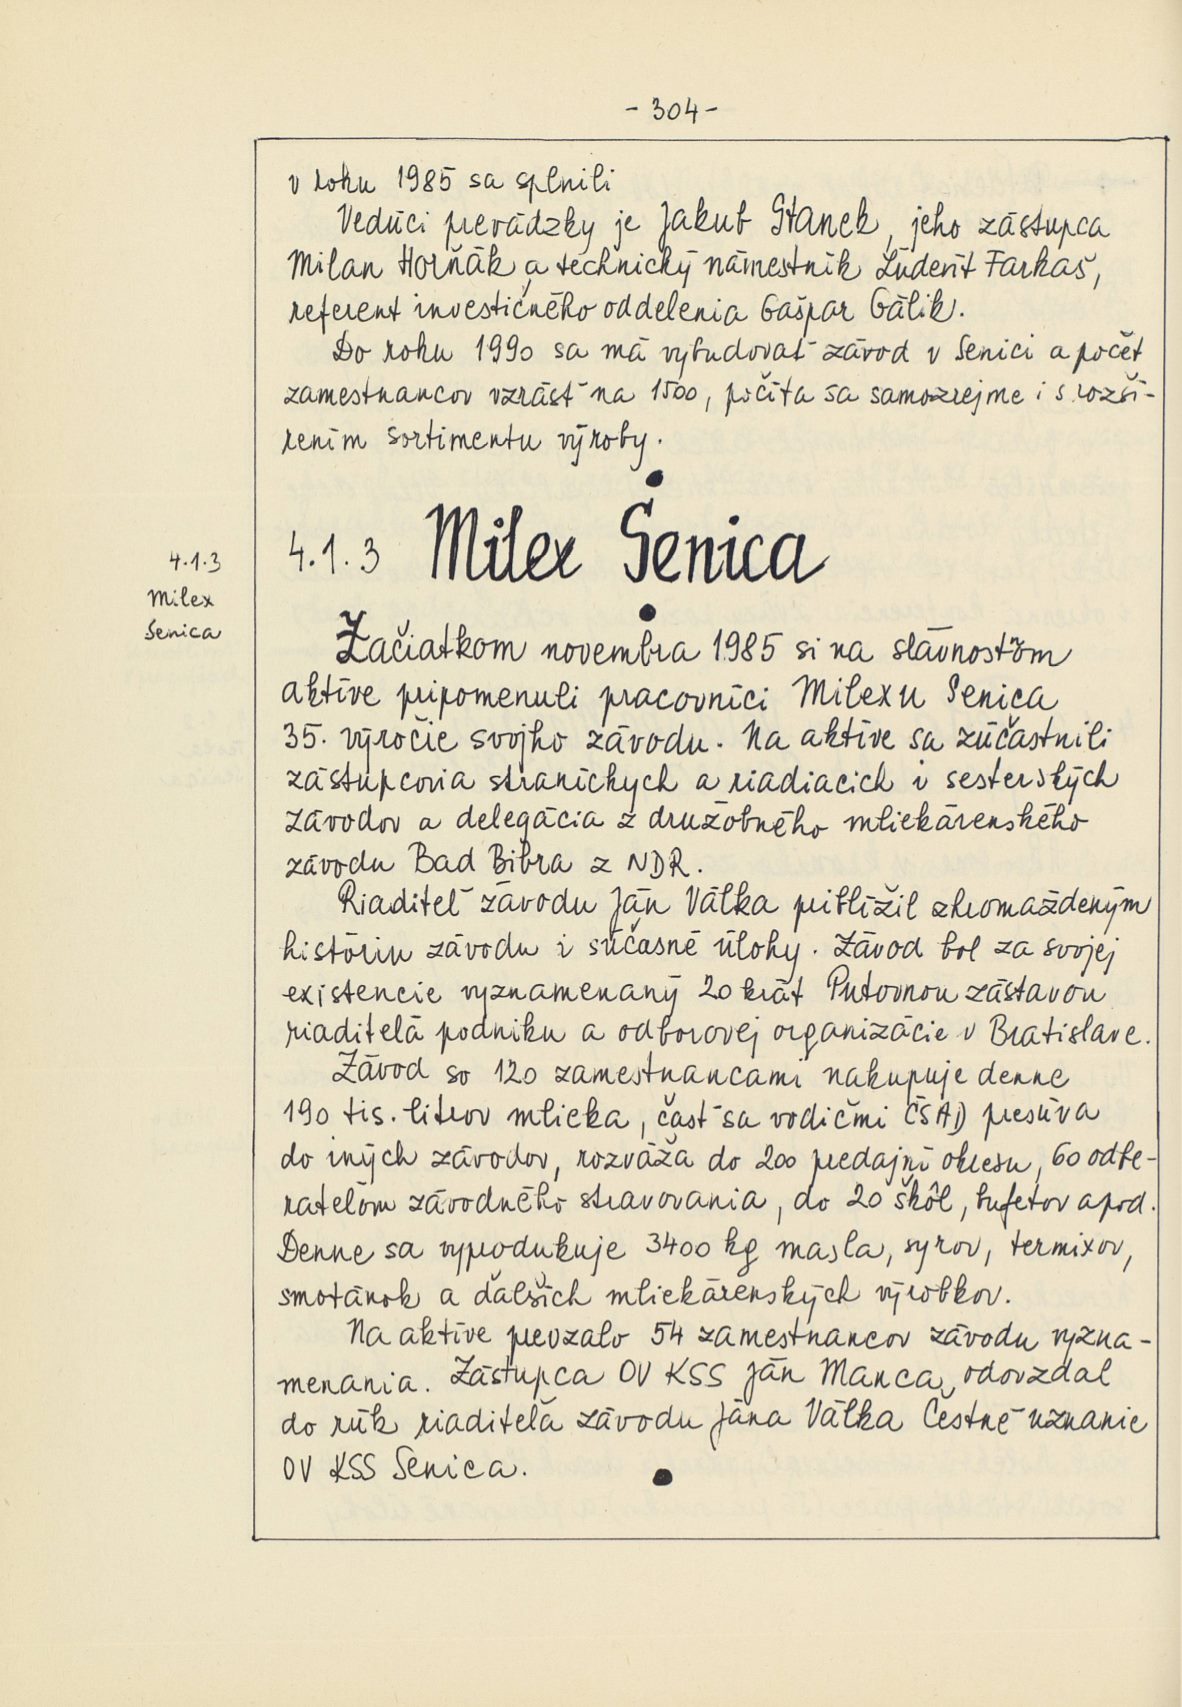 - 304 -
v roku 1985 sa splnili
Vedúci prevádzky je Jakub Stanek, jeho zástupca
Milan Horňák a technický námestník Ľudevít Farkaš,
referent investičného oddelenia Gašpar Gálik.
Do roku 1990 sa má vybudovať závod v Senici a počet
zamestnancov vzrásť na 1500, počíta sa samozrejme i s rozší-
rením sortimentu výroby.
4.1.3 Milex Senica
4.1.3
Milex
Senica
Začiatkom novembra 1985 si na slávnostnom
aktíve pripomenuli pracovníci Milexu Senica
35. výročie svojho závodu. Na aktíve sa zúčastnili
zástupcovia straníckych a riadiacich i sesterských
závodov a delegácia z družobného mliekárenského
závodu Bad Bibra z NDR.
Riaditeľ závodu Ján Válka priblížil zhromaždeným
históriu závodu i súčasné úlohy. Závod bol za svojej
existencie vyznamenaný 20 krát Putovnou zástavou
riaditeľa podniku a odborovej organizácie v Bratislave.
Závod so 120 zamestnancami nakupuje denne
190 tis. litrov mlieka, časť sa vodičmi ČSAD presúva
do iných závodov, rozváža do 200 predajní okresu, 60 odbe-
rateľom závodného stravovania, do 20 škôl, bufetov apod.
Denne sa vyprodukuje 3400 kg masla, syrov, termixov,
smotánok a ďalších mliekárenských výrobkov.
Na aktíve prevzalo 54 zamestnancov závodu vyzna-
menania. Zástupca OV KSS Ján Manca odovzdal
do rúk riaditeľa závodu Jána Válka Čestné uznanie
OV KSS Senica.